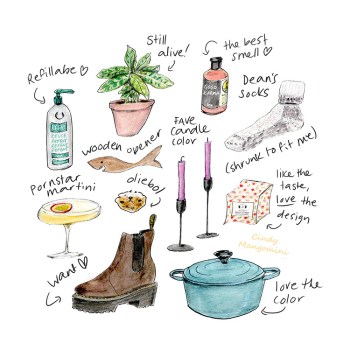 Still
alive!
the best
smell
Refillable
Dean's
socks
GOOD
KARMA
wooden opener
FAVE
candle
color
(shrunk to fit me)
Pornstar
martini
oliebol
like the
taste,
love the
design
Cindy
Mangomini
want
love the
color